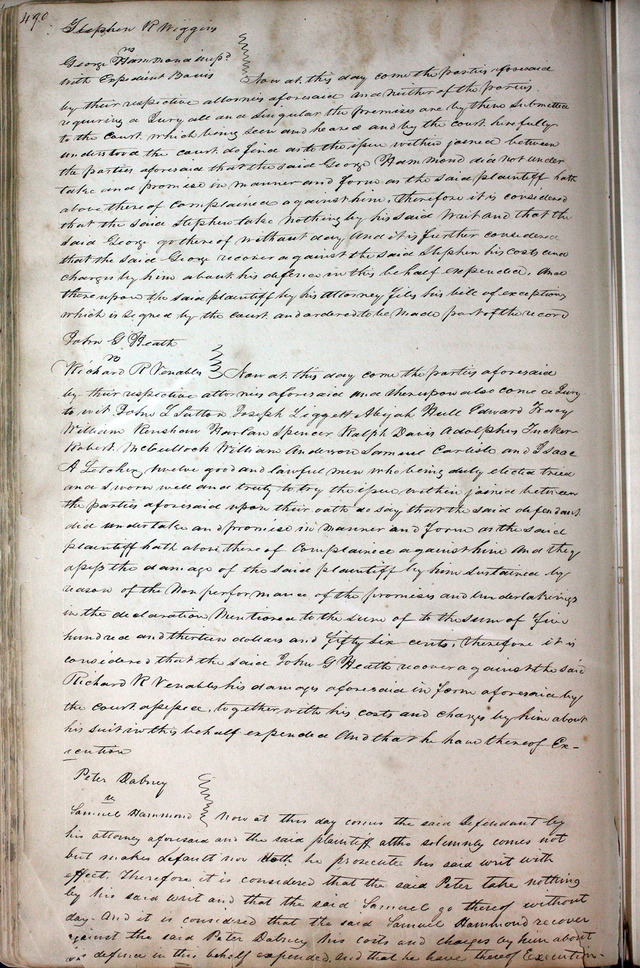 490
Stephen R Wiggins
vs
George Hammond impd
with Expedient Davis Now at this day come the parties aforesaid
by their respective attornies aforesaid and neither of the parties
requiring a Jury all and singular the premises are by them submitted
to the court which being seen and heard and by the court here fully
understood the court do find as to the issue within joined between
the parties aforesaid that the said George Hammond did not under
take and promise in manner and form as the said plaintiff hath
above thereof complained against him. Therefore it is considered
that the said Stephen take nothing by his said Writ and that the
said George go thereof without day And it is further considered
that the said George recover against the said Stephen his costs and
charges by him about his defence in this behalf expended. And
thereupon the said plaintiff by his Attorney files his bill of exceptions
which is signed by the court and ordered to be made part of the record
John G Heath
vs
Richard R Venables Now at this day come the parties aforesaid
by their respective attornies aforesaid and thereupon also come a Jury
to wit John L Sutton Joseph Liggett Hull Edward Tracy
William Renshaw Harlan Spencer Ralph Davis Adolphus Tucker
Robert McCullock William Anderson Samuel Carlisle and Isaac
A Letcher twelve good and lawful men who being duly elected tried
and sworn well and truly to try the issue within joined between
the parties aforesaid upon their oath do say that the said defendant
did undertake and promise in manner and form as the said
plaintiff hath above thereof complained against him And they
assess the damage of the said plaintiff by him sustained by
reason of the Non performance of the promises and undertakings
in the declaration Mentioned to the sum of to the sum of five
hundred and thirteen dollars and fifty six cents, therefore it is
considered that the said John G Heath recover against the said
Richard R Venables his damages aforesaid in form aforesaid by
the court assessed, together with his costs and charges by him about
his suit in this behalf expended And that he have thereof Ex-
ecution
Peter Dabney
vs
Samuel Hammond Now at this day comes the said Defendant by
his attorney aforesaid and the said plaintiff altho solemnly comes not
but makes default nor Hath he prosecute his said writ with
effect. Therefore it is considered that the said Peter take nothing
by his said writ and that the said Samuel go thereof without
day. And it is considered that the said Samuel Hammond recover
against the said Peter Dabney his costs and charges by him about
his defence in this behalf expended, and that he have thereof Execution.